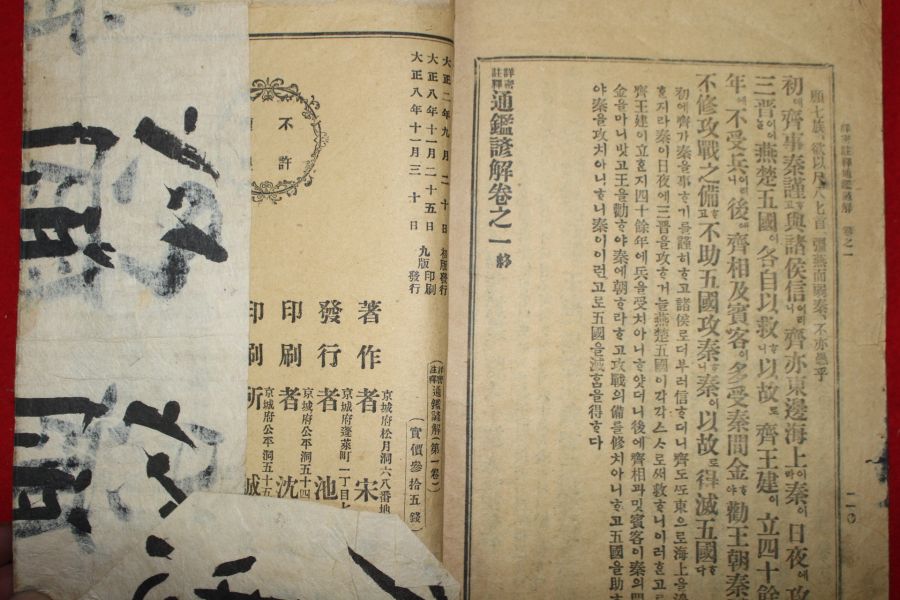 願七族、欲以尺八七首、彊燕而弱秦、不亦愚乎
初에齊事秦謹고與諸侯信이러니齊亦東邊海上이라秦이日夜에攻
三晋燕楚五國이各自以救니以故로齊王建이立四十餘
年에不受兵니後에齊相及賓客이多受秦間金야勸王朝秦
不修攻戰之備고不助五國攻秦니秦이以故로得滅五國다
初에齊가秦을事ᄒᆞ기를謹히ᄒᆞ고諸侯로더부러信ᄒᆞ더니齊도ᄯᅩ東으로海上을
ᄒᆞᆫ지라秦이日夜에三晋을攻ᄒᆞ거늘燕楚五國이각각스스로써救ᄒᆞ니이러ᄒᆞᆫ고로
齊王建이立ᄒᆞᆫ지四十餘年에兵을受치아니ᄒᆞ얏더니後에齊相과밋賓客이秦의間
金을마니밧고王을勸ᄒᆞ야秦에朝ᄒᆞ라ᄒᆞ고攻戰의備를修치아니ᄒᆞ고五國을助ᄒᆞ
야秦을攻치아니ᄒᆞ니秦이이런고로五國을滅ᄒᆞᆷ을得ᄒᆞ다
詳密註釋通鑑諺解卷之一 終
詳密註釋通鑑諺解 卷之一
二十
詳密註釋通鑑諺解(第一卷)
(實價參拾五錢)
京城府松月洞六八番地
著作者 宋
京城府蓬萊町一丁目七
發行者 池
京城府公平洞五十四
印刷者 沈
京城府公平洞五十五
印刷所 誠
大正二年九月二十日 初版發行
大正八年十一月二十五日 九版印刷
大正八年十一月三十日 九版發行
不許